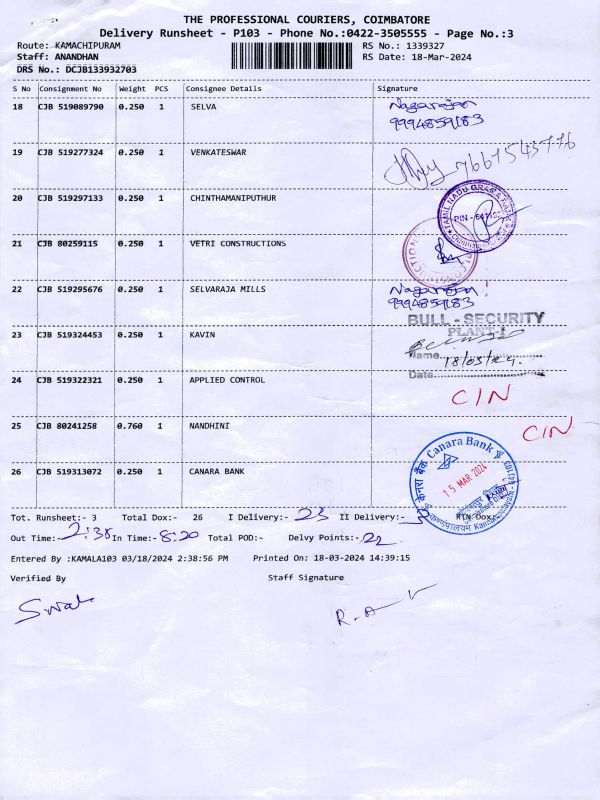 THE PROFESSIONAL COURIERS, COIMBATORE
Delivery Runsheet - P103 - Phone No.:0422-3505555 - Page No.:3
Route: KAMACHIPURAM RS No.: 1339327
Staff: ANANDHAN RS Date: 18-Mar-2024
DRS No.: DCJB133932703
S No Consignment No Weight PCS Consignee Details Signature
18 CJB 519089790 0.250 1 SELVA Nagarajan
9994859183
19 CJB 519277324 0.250 1 VENKATESWAR 7667543776
20 CJB 519297133 0.250 1 CHINTHAMANIPUTHUR TAMIL NADU GRAMA BANK
21 CJB 80259115 0.250 1 VETRI CONSTRUCTIONS
22 CJB 519295676 0.250 1 SELVARAJA MILLS Nagarajan
9994859183
BULL - SECURITY
PLANT-I
23 CJB 519324453 0.250 1 KAVIN
Name
18/03/24
Date
24 CJB 519322321 0.250 1 APPLIED CONTROL CIN
25 CJB 80241258 0.760 1 NANDHINI CIN
26 CJB 519313072 0.250 1 CANARA BANK केनरा बैंक Canara Bank
15 MAR 2024
Tot. Runsheet:- 3 Total Dox:- 26 I Delivery:- 23 II Delivery:- 3 RTN Dox:-
Out Time:- 2:38 In Time:- 8:20 Total POD:- Delvy Points:- 22
Entered By :KAMALA103 03/18/2024 2:38:56 PM Printed On: 18-03-2024 14:39:15
Verified By Staff Signature